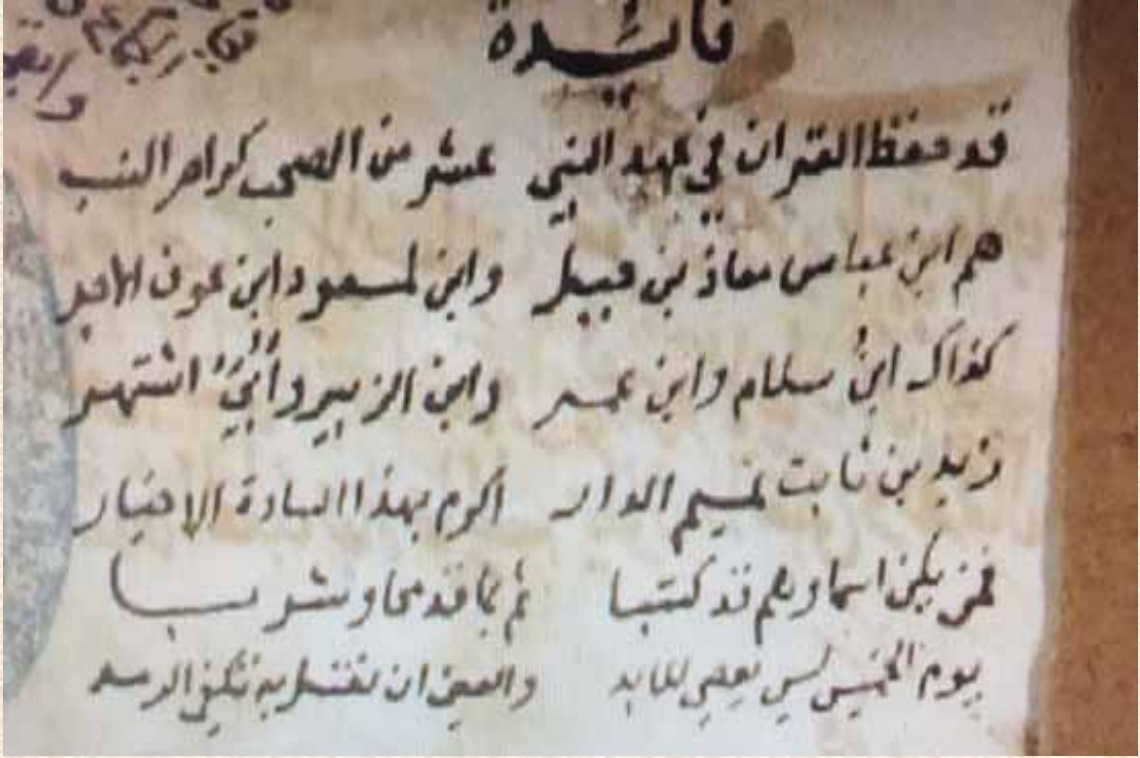 فائدة
قد حفظ القران في عهد النبي عشر من الصحب كرام النسب
هم ابن عباس معاذ بن جبل وابن لمسعود ابن عوف الاجل
كذاك ابن سلام وابن عمر وابن الزبير وأبيّ اشتهر
زيد بن ثابت تميم الدار اكرم بهذا السادة الاخيار
فمن يكن اسماوهم قد كتبا ثم بما قد محا وشربا
يوم الخميس ليس للابد والعين ان